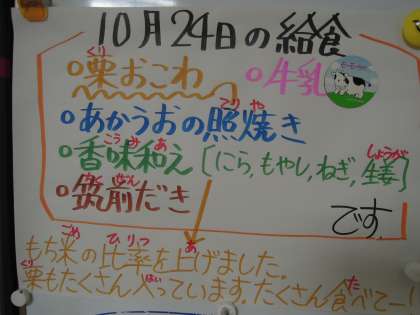 10月24日の給食
くり
○栗おこわ ○牛乳
てり や
○あかうおの照焼き
こう み あ しょうが
○香味和え〔にら,もやし,ねぎ,生姜〕
ちく ぜん
○筑前だき
です。
ごめ ひ りつ あ
もち米の比率を上げました。
くり はい た
栗もたくさん入っています。たくさん食べてー!